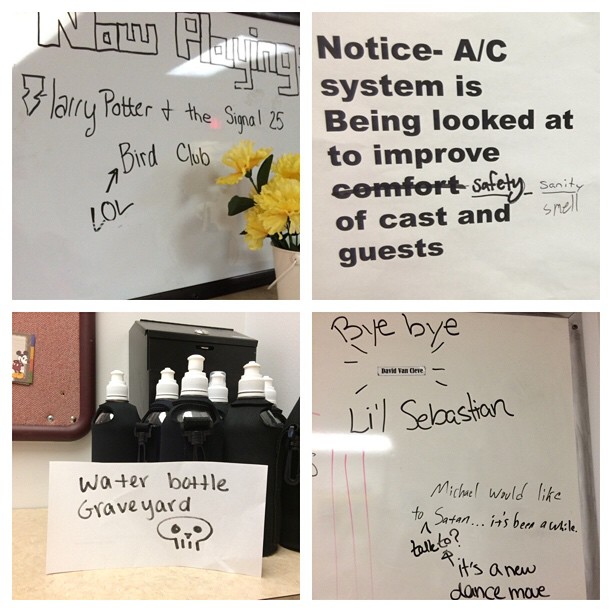 Now Playing:
Harry Potter + the Signal 25
Bird Club
LOL
Notice- A/C
system is
Being looked at
to improve
comfort safety sanity
smell
of cast and
guests
Water bottle
Graveyard
Bye bye
David Van Cleve
Li'l Sebastian
Michael would like
to Satan... it's been a while.
talk to?
it's a new
dance move